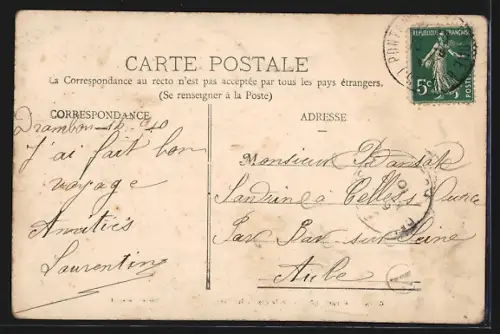 CARTE POSTALE
La Correspondance au recto n'est pas acceptée par tous les pays étrangers.
(Se renseigner à la Poste)
CORRESPONDANCE
ADRESSE
REPUBLIQUE FRANÇAISE
5c
POSTES
PONT
J'ai fait bon
voyage
Amitiés
Laurentine
Monsieur
à Celles
Par Bar sur Seine
Aube